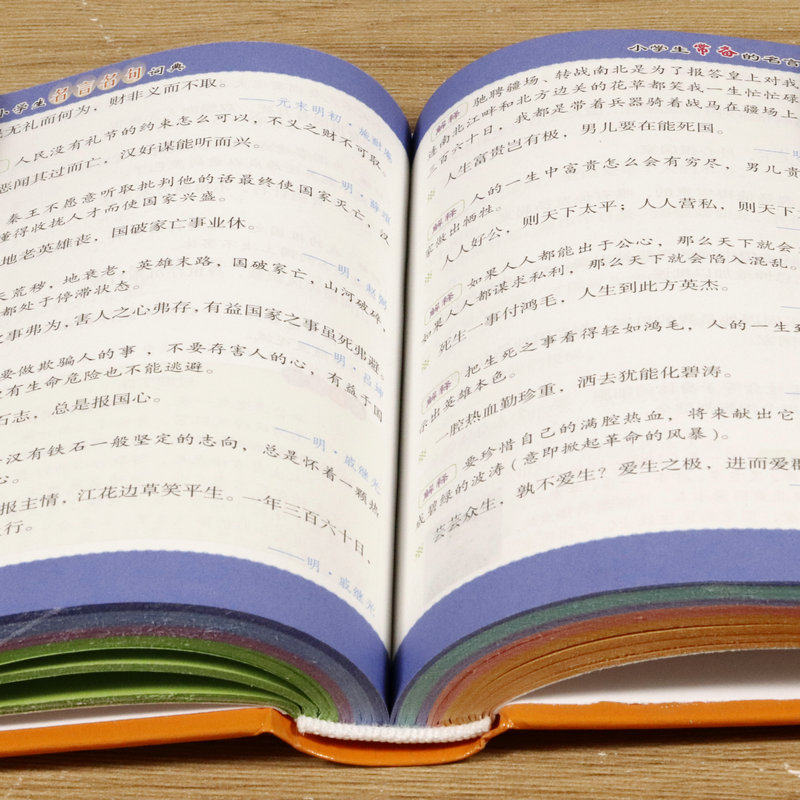 小学生名言名句词典
无礼而何为，财非义而不取。
——元末明初·施耐庵
人民没有礼节的约束怎么可以，不义之财不可取。
恶闻其过而亡，汉好谋能听而兴。
——明·薛瑄
秦王不愿意听取批判他的话最终使国家灭亡，汉
懂得收拢人才而使国家兴盛。
地老英雄丧，国破家亡事业休。
——明·赵弼
天荒秽，地衰老，英雄末路，国破家亡，山河破碎，
都处于停滞状态。
之事弗为，害人之心弗存，有益国家之事虽死弗避。
——明·吕坤
要做欺骗人的事，不要存害人的心，有益于国
有生命危险也不能逃避。
石志，总是报国心。
——明·戚继光
汉有铁石一般坚定的志向，总是怀着一颗热
心。
报主情，江花边草笑平生。一年三百六十日，
行。
——明·戚继光
小学生常备的名言
解释 驰骋疆场、转战南北是为了报答皇上对我
连南北江畔和北方边关的花草都笑我一生忙忙碌
三百六十日，我都是带着兵器骑着战马在疆场上
人生富贵岂有极，男儿要在能死国。
——明
解释 人的一生中富贵怎么会有穷尽，男儿贵
家做出牺牲。
人人好公，则天下太平；人人营私，则天下
解释 如果人人都能出于公心，那么天下就会
如果人人都谋求私利，那么天下就会陷入混乱。
死生一事付鸿毛，人生到此方英杰。
解释 把生死之事看得轻如鸿毛，人的一生到
杀出英雄本色。
一腔热血勤珍重，洒去犹能化碧涛。
解释 要珍惜自己的满腔热血，将来献出它
成碧绿的波涛(意即掀起革命的风暴)。
芸芸众生，孰不爱生？爱生之极，进而爱群